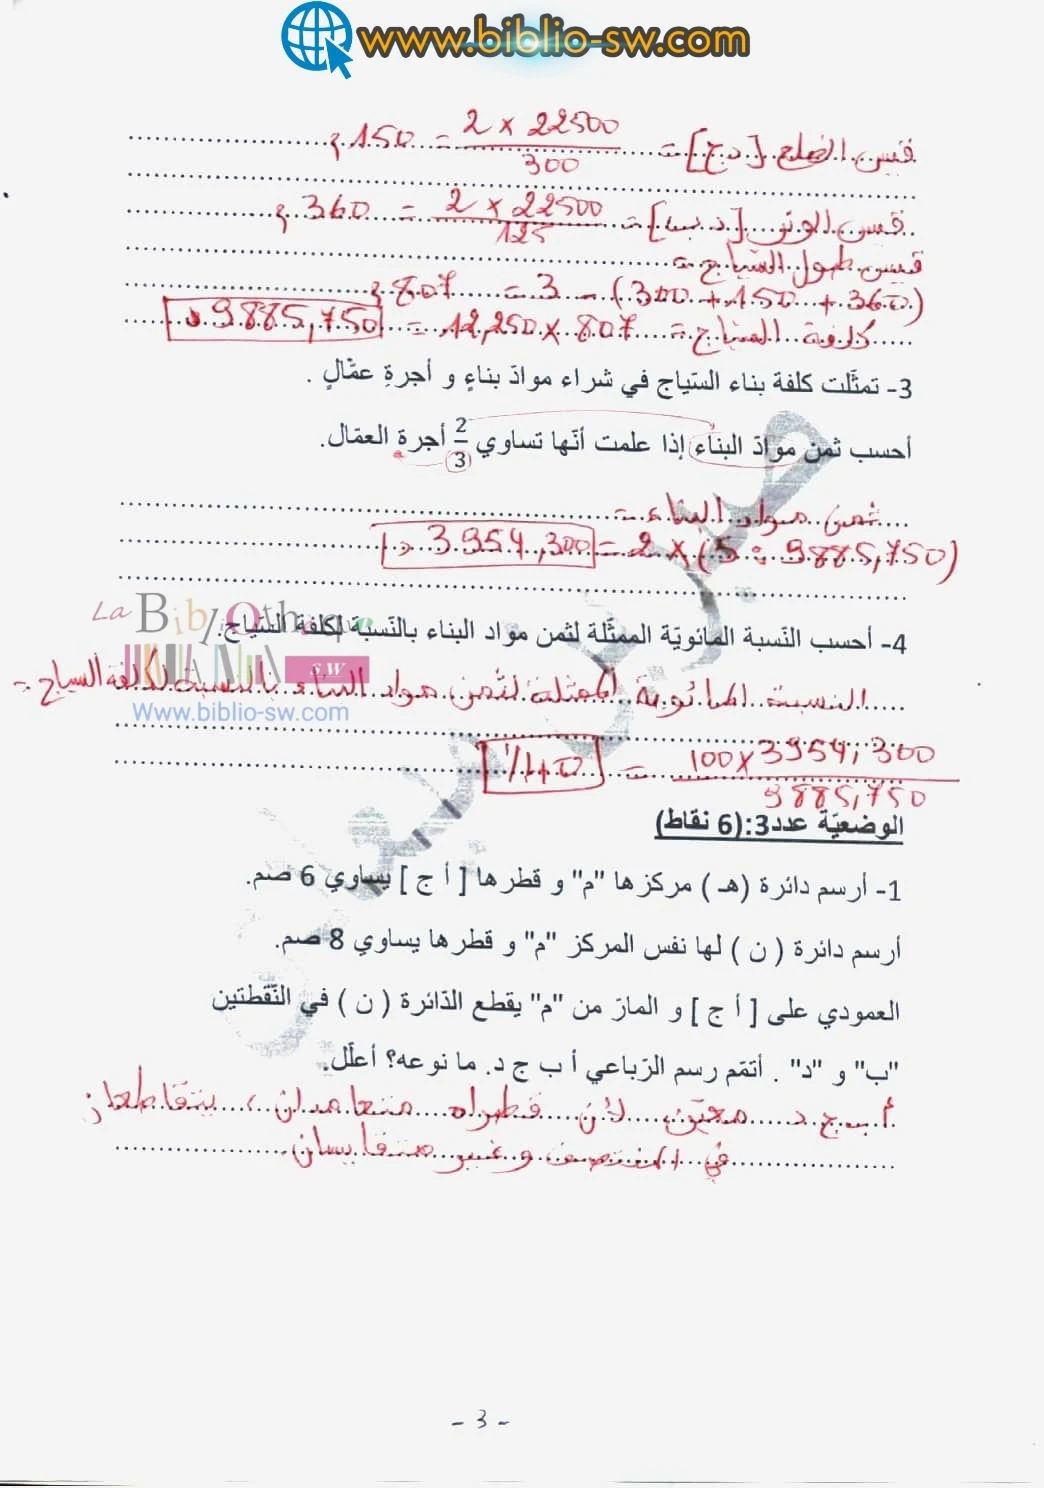 www.biblio-sw.com
قيس الضلع [د ج] = 2 × 22500 / 300 = 150 م
قيس الوتر [د ب] = 2 × 22500 / 125 = 360 م
قيس طول السّياج =
(360 + 150 + 300) - 3 = 807 م
كلفة السّياج = 807 × 12,250 = 9885,750 د
3- تمثّلت كلفة بناء السّياج في شراء موادّ بناءٍ و أجرةِ عمّالٍ .
أحسب ثمن موادّ البناء إذا علمت أنّها تساوي 2/3 أجرة العمّال.
ثمن مواد البناء =
(9885,750 : 5) × 2 = 3954,300 د
La Bibliothe
s.w
4- أحسب النّسبة المائويّة الممثّلة لثمن مواد البناء بالنّسبة لكلفة السّياج.
النسبة المائوية الممثلة لثمن مواد البناء بالنسبة لكلفة السياج =
Www.biblio-sw.com
100 × 3954,300 / 9885,750 = 40 %
الوضعيّة عدد3:(6 نقاط)
1- أرسم دائرة (هـ) مركزها "م" و قطرها [ أ ج ] يساوي 6 صم.
أرسم دائرة ( ن ) لها نفس المركز "م" و قطرها يساوي 8 صم.
العمودي على [ أ ج ] و المارّ من "م" يقطع الدّائرة ( ن ) في النّقطتين
"ب" و "د" . أتمّم رسم الرّباعي أ ب ج د. ما نوعه؟ أعلّل.
أ ب ج د معيّن لأن قطراه متعامدان ، يتقاطعان
في المنتصف وغير متقايسان.
- 3 -